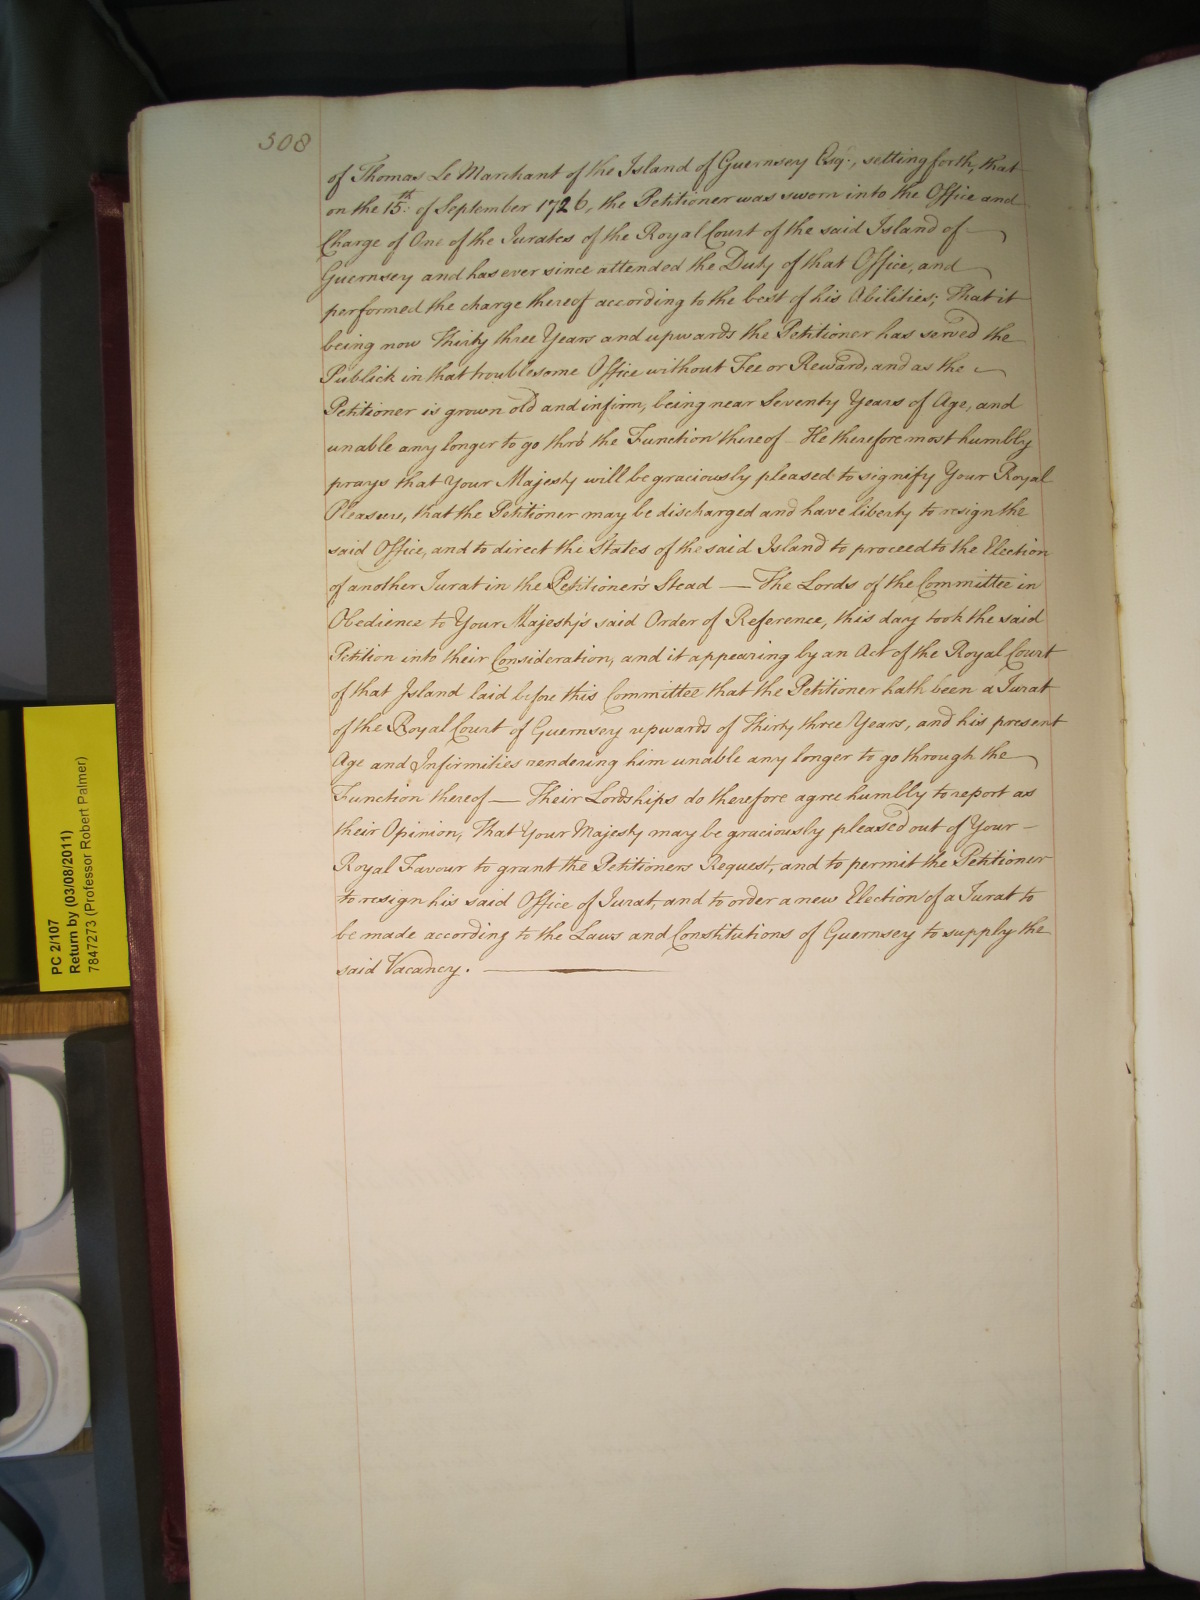 308
of Thomas Le Marchant of the Island of Guernsey Esqr., setting forth, that
on the 15th: of September 1726, the Petitioner was sworn into the Office and
Charge of One of the Jurates of the Royal Court of the said Island of
Guernsey and has ever since attended the Duty of that Office, and
performed the charge thereof according to the best of his Abilities; That it
being now Thirty three Years and upwards the Petitioner has served the
Publick in that troublesome Office without Fee or Reward, and as the
Petitioner is grown old and infirm, being near Seventy Years of Age, and
unable any longer to go thro' the Function thereof – He therefore most humbly
prays that Your Majesty will be graciously pleased to signify Your Royal
Pleasure, that the Petitioner may be discharged and have liberty to resign the
said Office, and to direct the States of the said Island to proceed to the Election
of another Jurat in the Petitioner's Stead — The Lords of the Committee in
Obedience to Your Majesty's said Order of Reference, this day took the said
Petition into their Consideration, and it appearing by an Act of the Royal Court
of that Island laid before this Committee that the Petitioner hath been a Jurat
of the Royal Court of Guernsey upwards of Thirty three Years, and his present
Age and Infirmities rendering him unable any longer to go through the
Function thereof — Their Lordships do therefore agree humbly to report as
their Opinion, That Your Majesty may be graciously pleased out of Your –
Royal Favour to grant the Petitioners Request, and to permit the Petitioner
to resign his said Office of Jurat, and to order a new Election of a Jurat to
be made according to the Laws and Constitutions of Guernsey to supply the
said Vacancy.
PC 2/107
Return by (03/08/2011)
7847273 (Professor Robert Palmer)